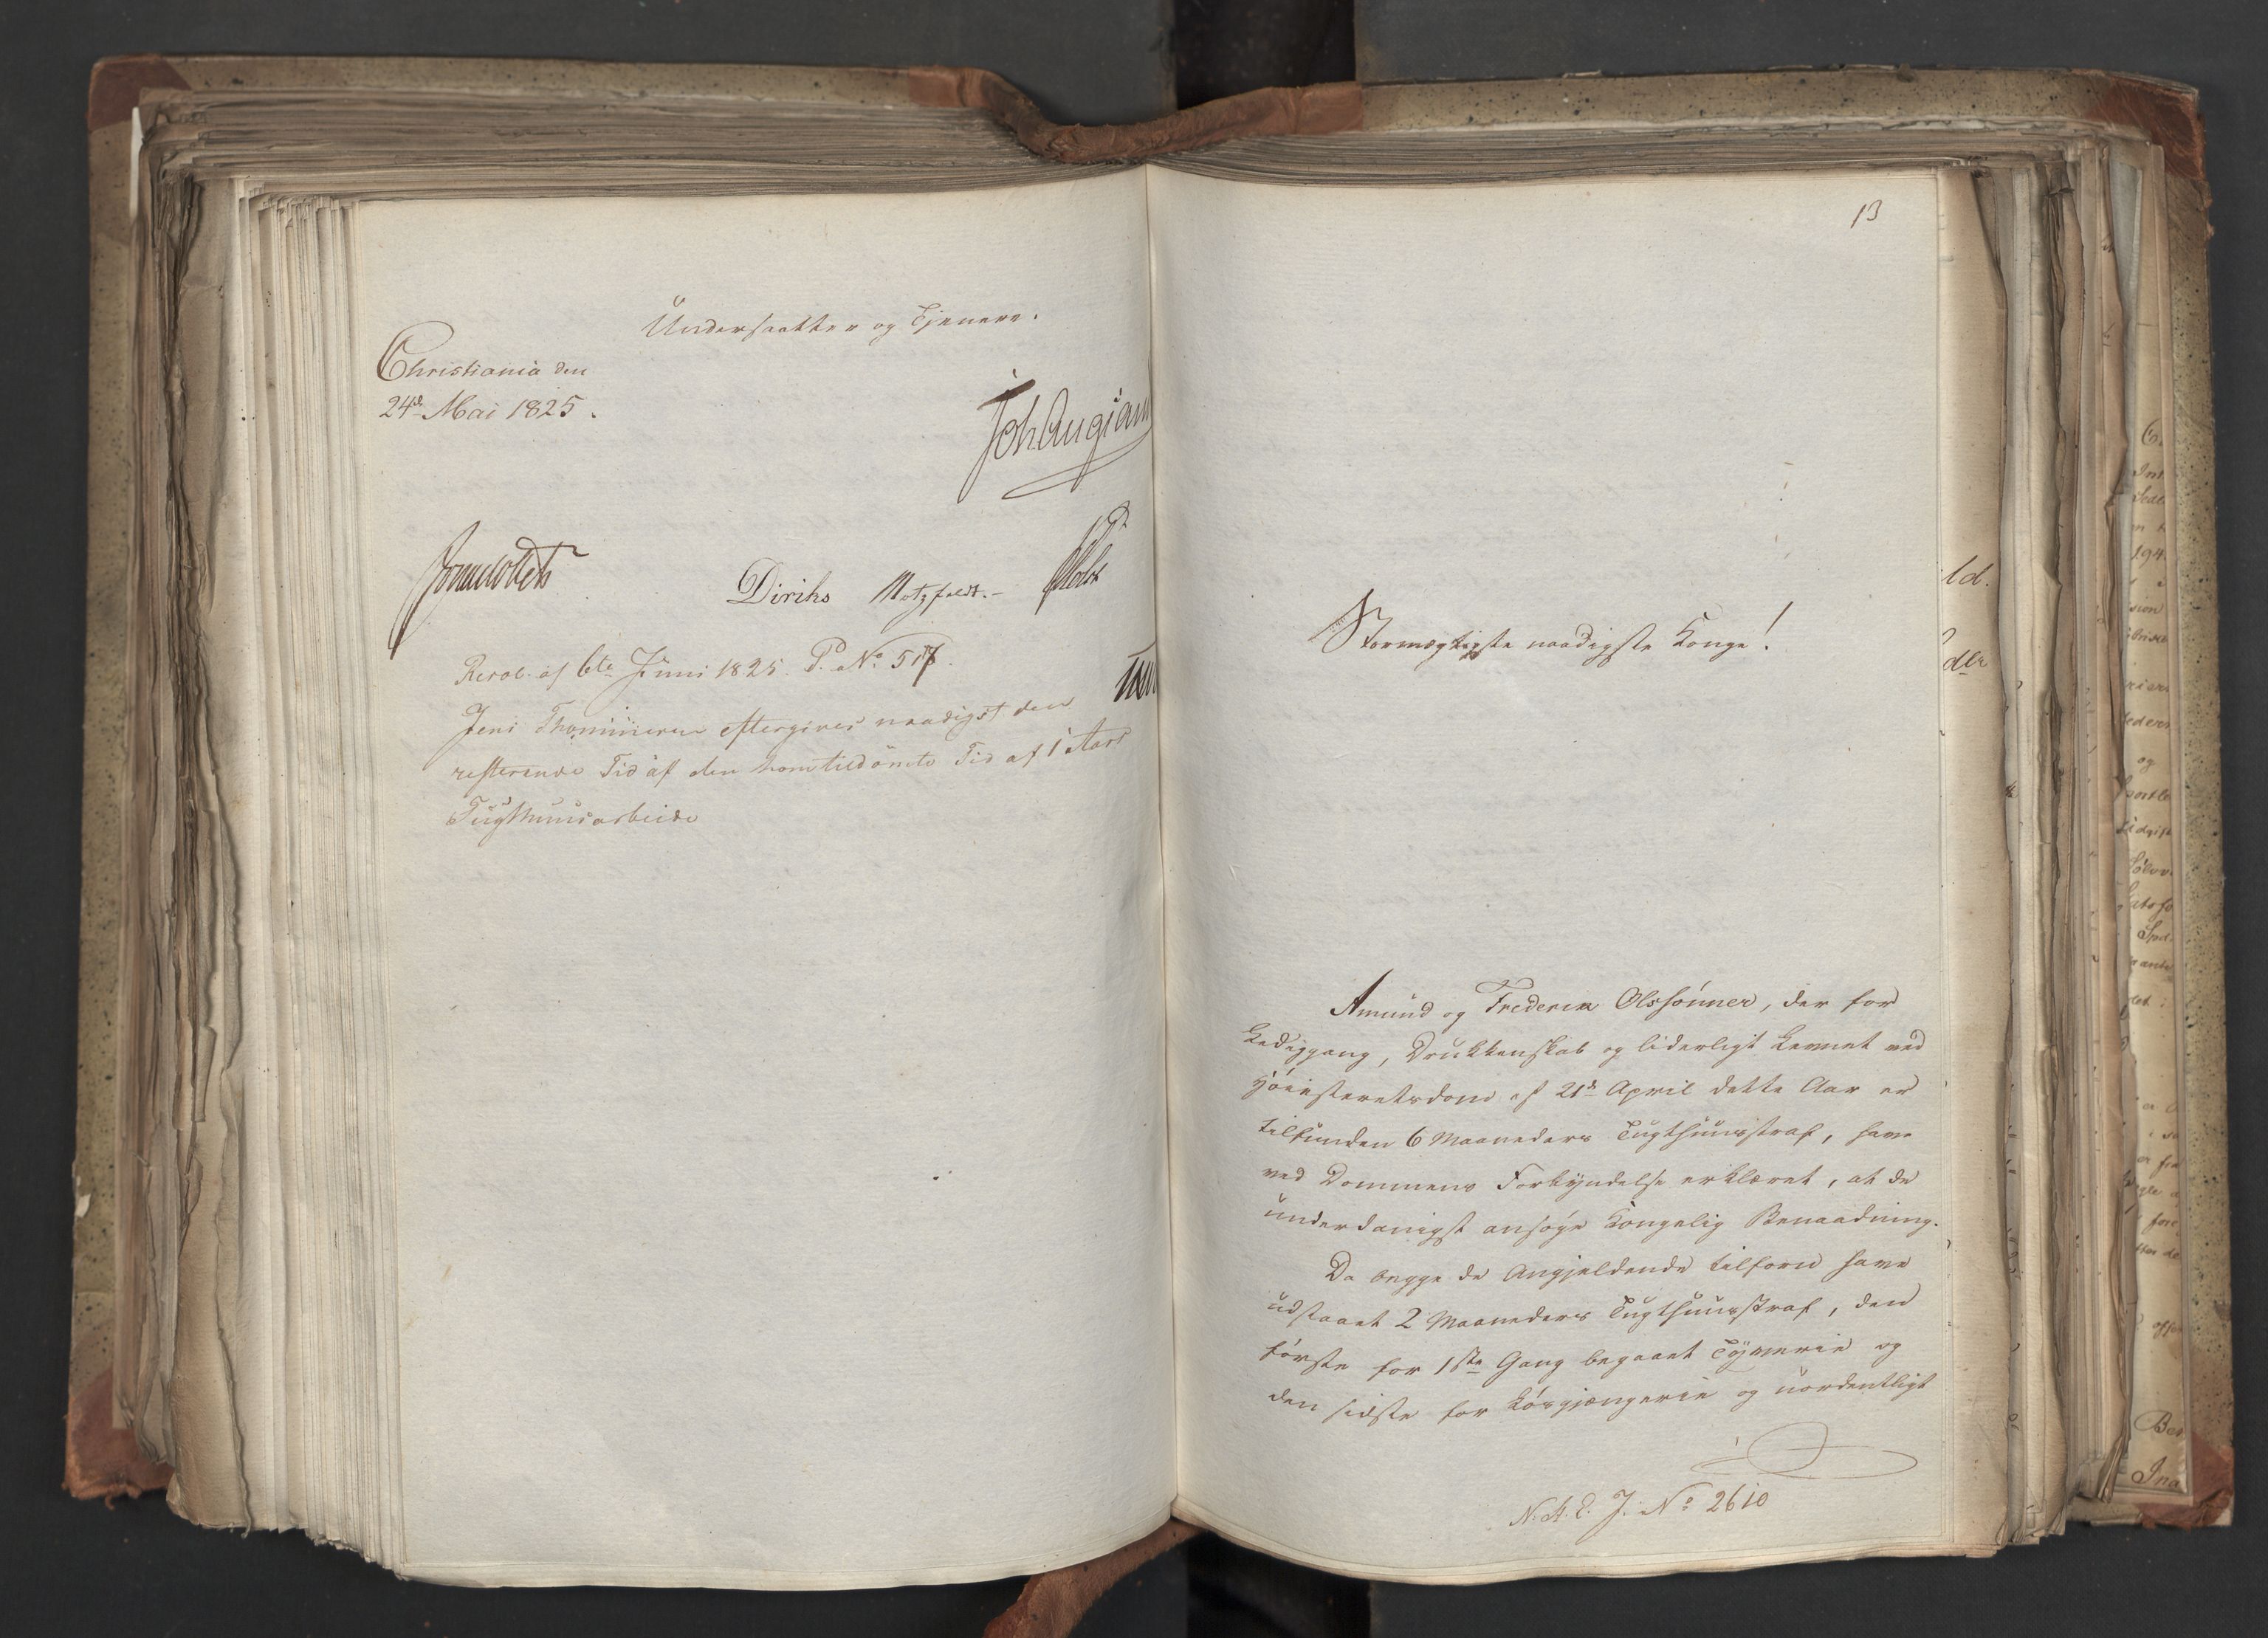 Undersaatter og Tjenere.
Christiania den
24de Mai 1825.
Joh Aug Sand
Jonas Collett
Diriks Motzfeldt.- Holst
Resol. af 6te Juni 1825. P. No. 517.
Jens Thommesen eftergives naadigst den
resterende Tid af den ham tildømte Tid af 1 Aars
Tugthuusarbeide
13
Stormægtigste naadigste Konge!
Amund og Frederik Olssønner, der for
Lediggang, Drukkenskab og liderligt Levnet ved
Høiesteretsdom af 21de April dette Aar er
tilfunden 6 Maaneders Tugthuusstraf, have
ved Dommens Forkyndelse erklæret, at de
underdanigst ansøge Kongelig Benaadning.
Da begge de Angjeldende tilforn have
udstaaet 2 Maaneders Tugthuusstraf, den
første for 1ste Gang begaaet Tyverie og
den sidste for Løsgjængerie og uordentligt
N. A. E. J. No 2610